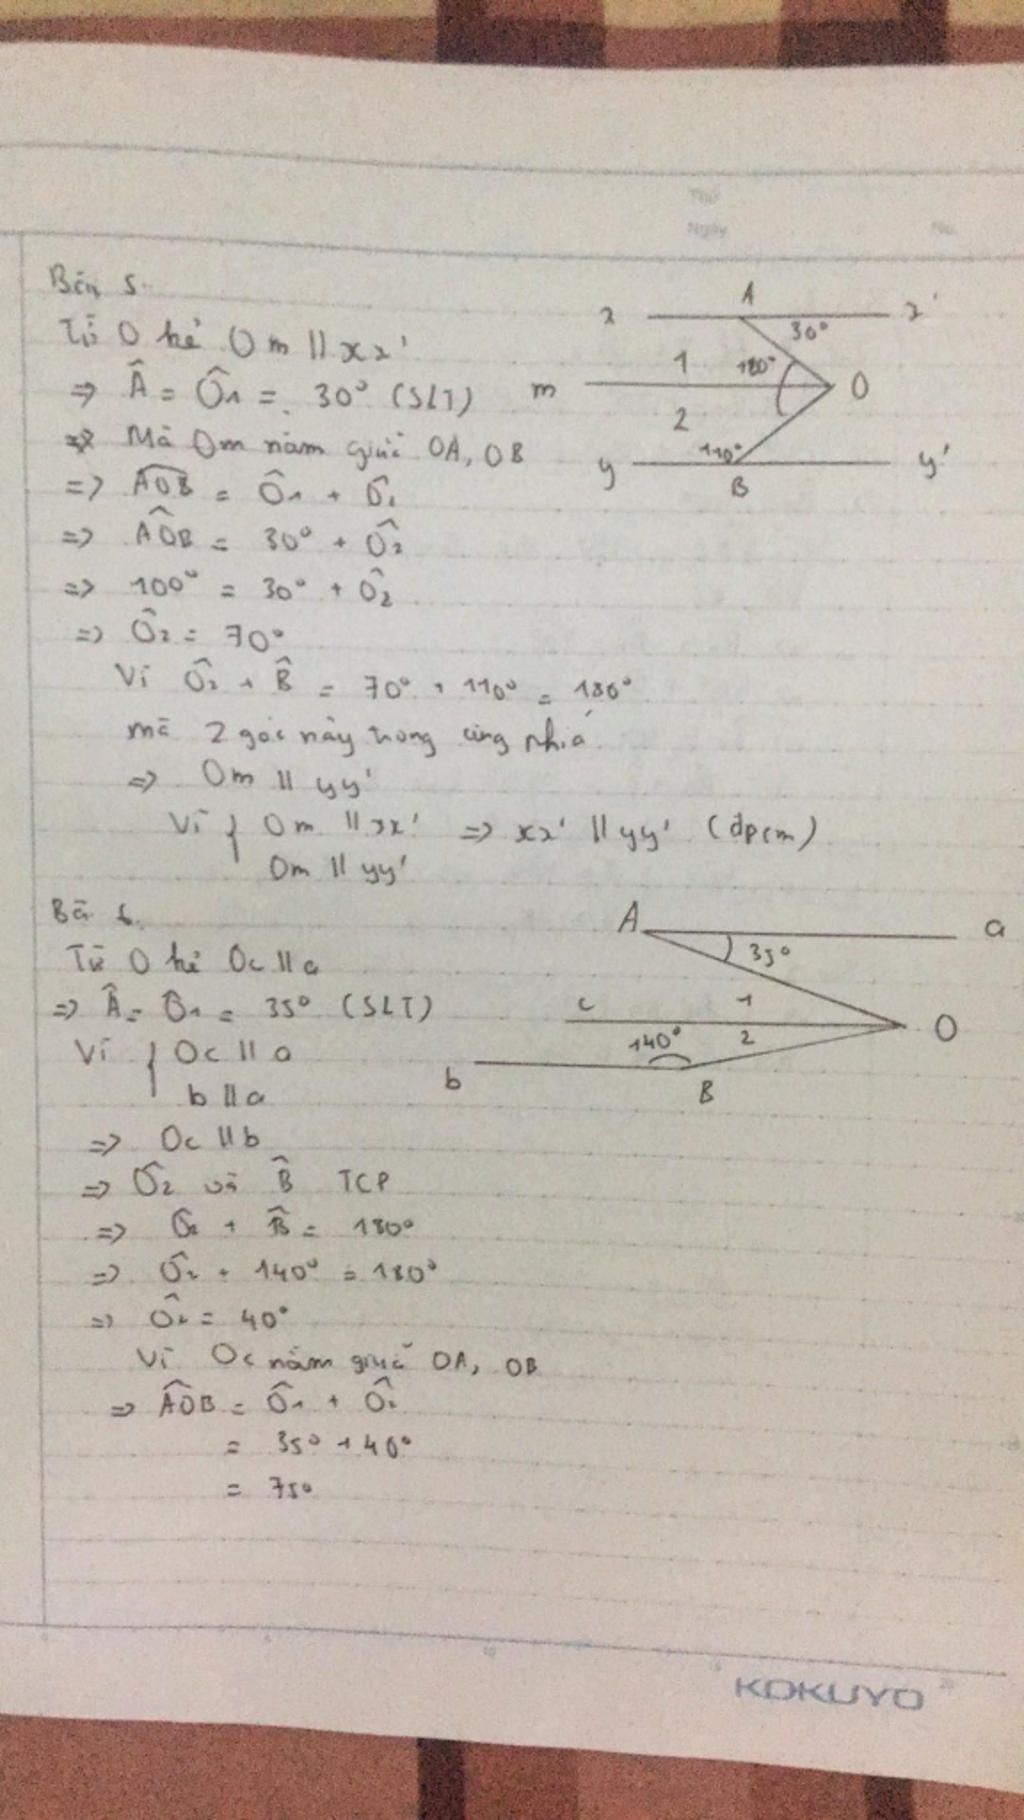 Thứ
Ngày
No.
Bài 5.
Từ O kẻ Om // xx'
=> Â = Ô1 = 30° (SLT)
=> Mà Om nằm giữa OA, OB
=> AOB = Ô1 + Ô2
=> AOB = 30° + Ô2
=> 100° = 30° + Ô2
=> Ô2 = 70°
Vì Ô2 + B̂ = 70° + 110° = 180°
mà 2 góc này trong cùng phía
=> Om // yy'
Vì { Om // xx' => xx' // yy' (đpcm)
Om // yy'
A
x x'
30°
1 100°
m O
2
110°
y y'
B
Bài 6.
Từ O kẻ Oc // a
=> Â = Ô1 = 35° (SLT)
Vì { Oc // a
b // a
=> Oc // b
=> Ô2 và B̂ TCP
=> Ô2 + B̂ = 180°
=> Ô2 + 140° = 180°
=> Ô2 = 40°
Vì Oc nằm giữa OA, OB
=> AOB = Ô1 + Ô2
= 35° + 40°
= 75°
A a
35°
c 1
140° 2 O
b B
KOKUYO